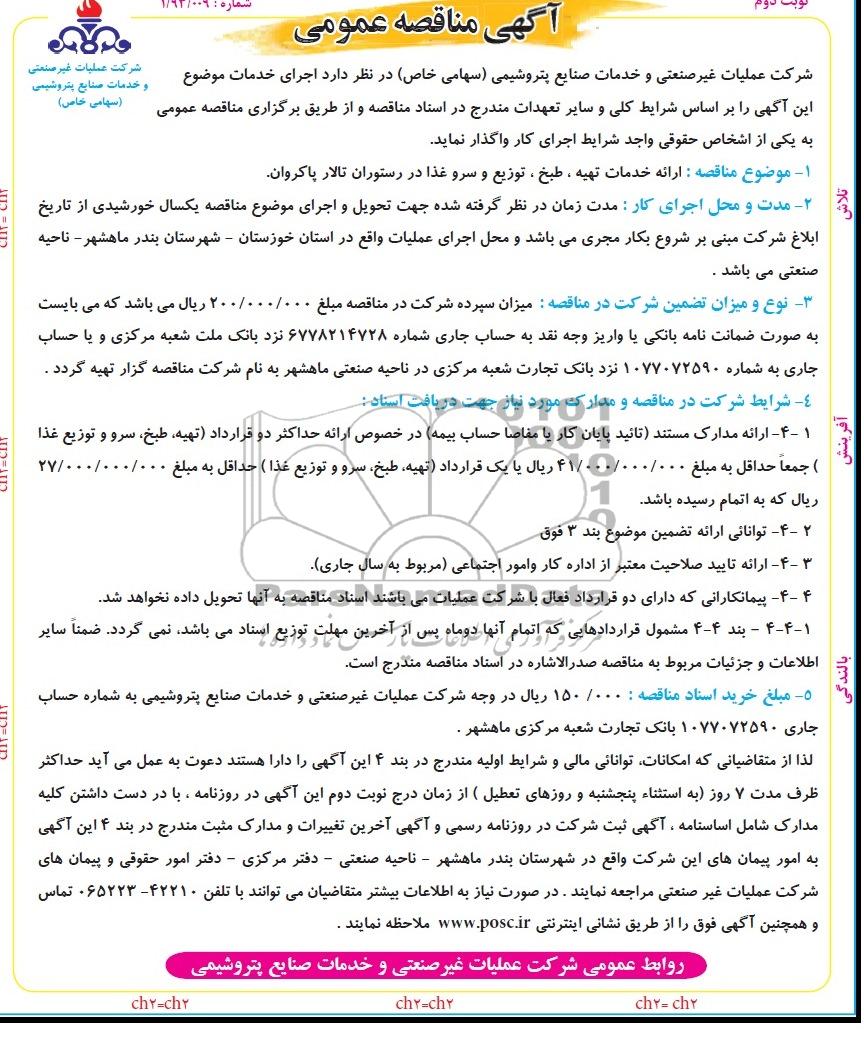 نوبت دوم
شماره : ۱/۹۳/۰۰۹
آگهی مناقصه عمومی
شرکت عملیات غیرصنعتی
و خدمات صنایع پتروشیمی
(سهامی خاص)
شرکت عملیات غیرصنعتی و خدمات صنایع پتروشیمی (سهامی خاص) در نظر دارد اجرای خدمات موضوع
این آگهی را بر اساس شرایط کلی و سایر تعهدات مندرج در اسناد مناقصه و از طریق برگزاری مناقصه عمومی
به یکی از اشخاص حقوقی واجد شرایط اجرای کار واگذار نماید.
۱- موضوع مناقصه : ارائه خدمات تهیه ، طبخ ، توزیع و سرو غذا در رستوران تالار پاکروان.
۲- مدت و محل اجرای کار : مدت زمان در نظر گرفته شده جهت تحویل و اجرای موضوع مناقصه یکسال خورشیدی از تاریخ
ابلاغ شرکت مبنی بر شروع بکار مجری می باشد و محل اجرای عملیات واقع در استان خوزستان - شهرستان بندر ماهشهر- ناحیه
صنعتی می باشد .
۳- نوع و میزان تضمین شرکت در مناقصه : میزان سپرده شرکت در مناقصه مبلغ ۲۰۰/۰۰۰/۰۰۰ ریال می باشد که می بایست
به صورت ضمانت نامه بانکی یا واریز وجه نقد به حساب جاری شماره ۶۷۷۸۲۱۴۷۲۸ نزد بانک ملت شعبه مرکزی و یا حساب
جاری به شماره ۱۰۷۷۰۷۲۵۹۰ نزد بانک تجارت شعبه مرکزی در ناحیه صنعتی ماهشهر به نام شرکت مناقصه گزار تهیه گردد .
۴- شرایط شرکت در مناقصه و مدارک مورد نیاز جهت دریافت اسناد :
۱ -۴- ارائه مدارک مستند (تائید پایان کار یا مفاصا حساب بیمه) در خصوص ارائه حداکثر دو قرارداد (تهیه، طبخ، سرو و توزیع غذا
) جمعاً حداقل به مبلغ ۴۱/۰۰۰/۰۰۰/۰۰۰ ریال یا یک قرارداد (تهیه، طبخ، سرو و توزیع غذا ) حداقل به مبلغ ۲۷/۰۰۰/۰۰۰/۰۰۰
ریال که به اتمام رسیده باشد.
۲ -۴- توانائی ارائه تضمین موضوع بند ۳ فوق
۳ -۴- ارائه تایید صلاحیت معتبر از اداره کار وامور اجتماعی (مربوط به سال جاری).
۴ -۴- پیمانکارانی که دارای دو قرارداد فعال با شرکت عملیات می باشند اسناد مناقصه به آنها تحویل داده نخواهد شد.
۴-۴-۱ - بند ۴-۴ مشمول قراردادهایی که اتمام آنها دوماه پس از آخرین مهلت توزیع اسناد می باشد، نمی گردد. ضمناً سایر
اطلاعات و جزئیات مربوط به مناقصه صدرالاشاره در اسناد مناقصه مندرج است.
۵- مبلغ خرید اسناد مناقصه : ۱۵۰ /۰۰۰ ریال در وجه شرکت عملیات غیرصنعتی و خدمات صنایع پتروشیمی به شماره حساب
جاری ۱۰۷۷۰۷۲۵۹۰ بانک تجارت شعبه مرکزی ماهشهر .
لذا از متقاضیانی که امکانات، توانائی مالی و شرایط اولیه مندرج در بند ۴ این آگهی را دارا هستند دعوت به عمل می آید حداکثر
ظرف مدت ۷ روز (به استثناء پنجشنبه و روزهای تعطیل ) از زمان درج نوبت دوم این آگهی در روزنامه ، با در دست داشتن کلیه
مدارک شامل اساسنامه ، آگهی ثبت شرکت در روزنامه رسمی و آگهی آخرین تغییرات و مدارک مثبت مندرج در بند ۴ این آگهی
به امور پیمان های این شرکت واقع در شهرستان بندر ماهشهر - ناحیه صنعتی - دفتر مرکزی - دفتر امور حقوقی و پیمان های
شرکت عملیات غیر صنعتی مراجعه نمایند . در صورت نیاز به اطلاعات بیشتر متقاضیان می توانند با تلفن ۴۲۲۱۰- ۰۶۵۲۲۳ تماس
و همچنین آگهی فوق را از طریق نشانی اینترنتی www.posc.ir ملاحظه نمایند .
روابط عمومی شرکت عملیات غیرصنعتی و خدمات صنایع پتروشیمی
تلاش
آفرینش
بالندگی
ch۲=ch۲
ch۲=ch۲
ch۲= ch۲
ParsNamadData